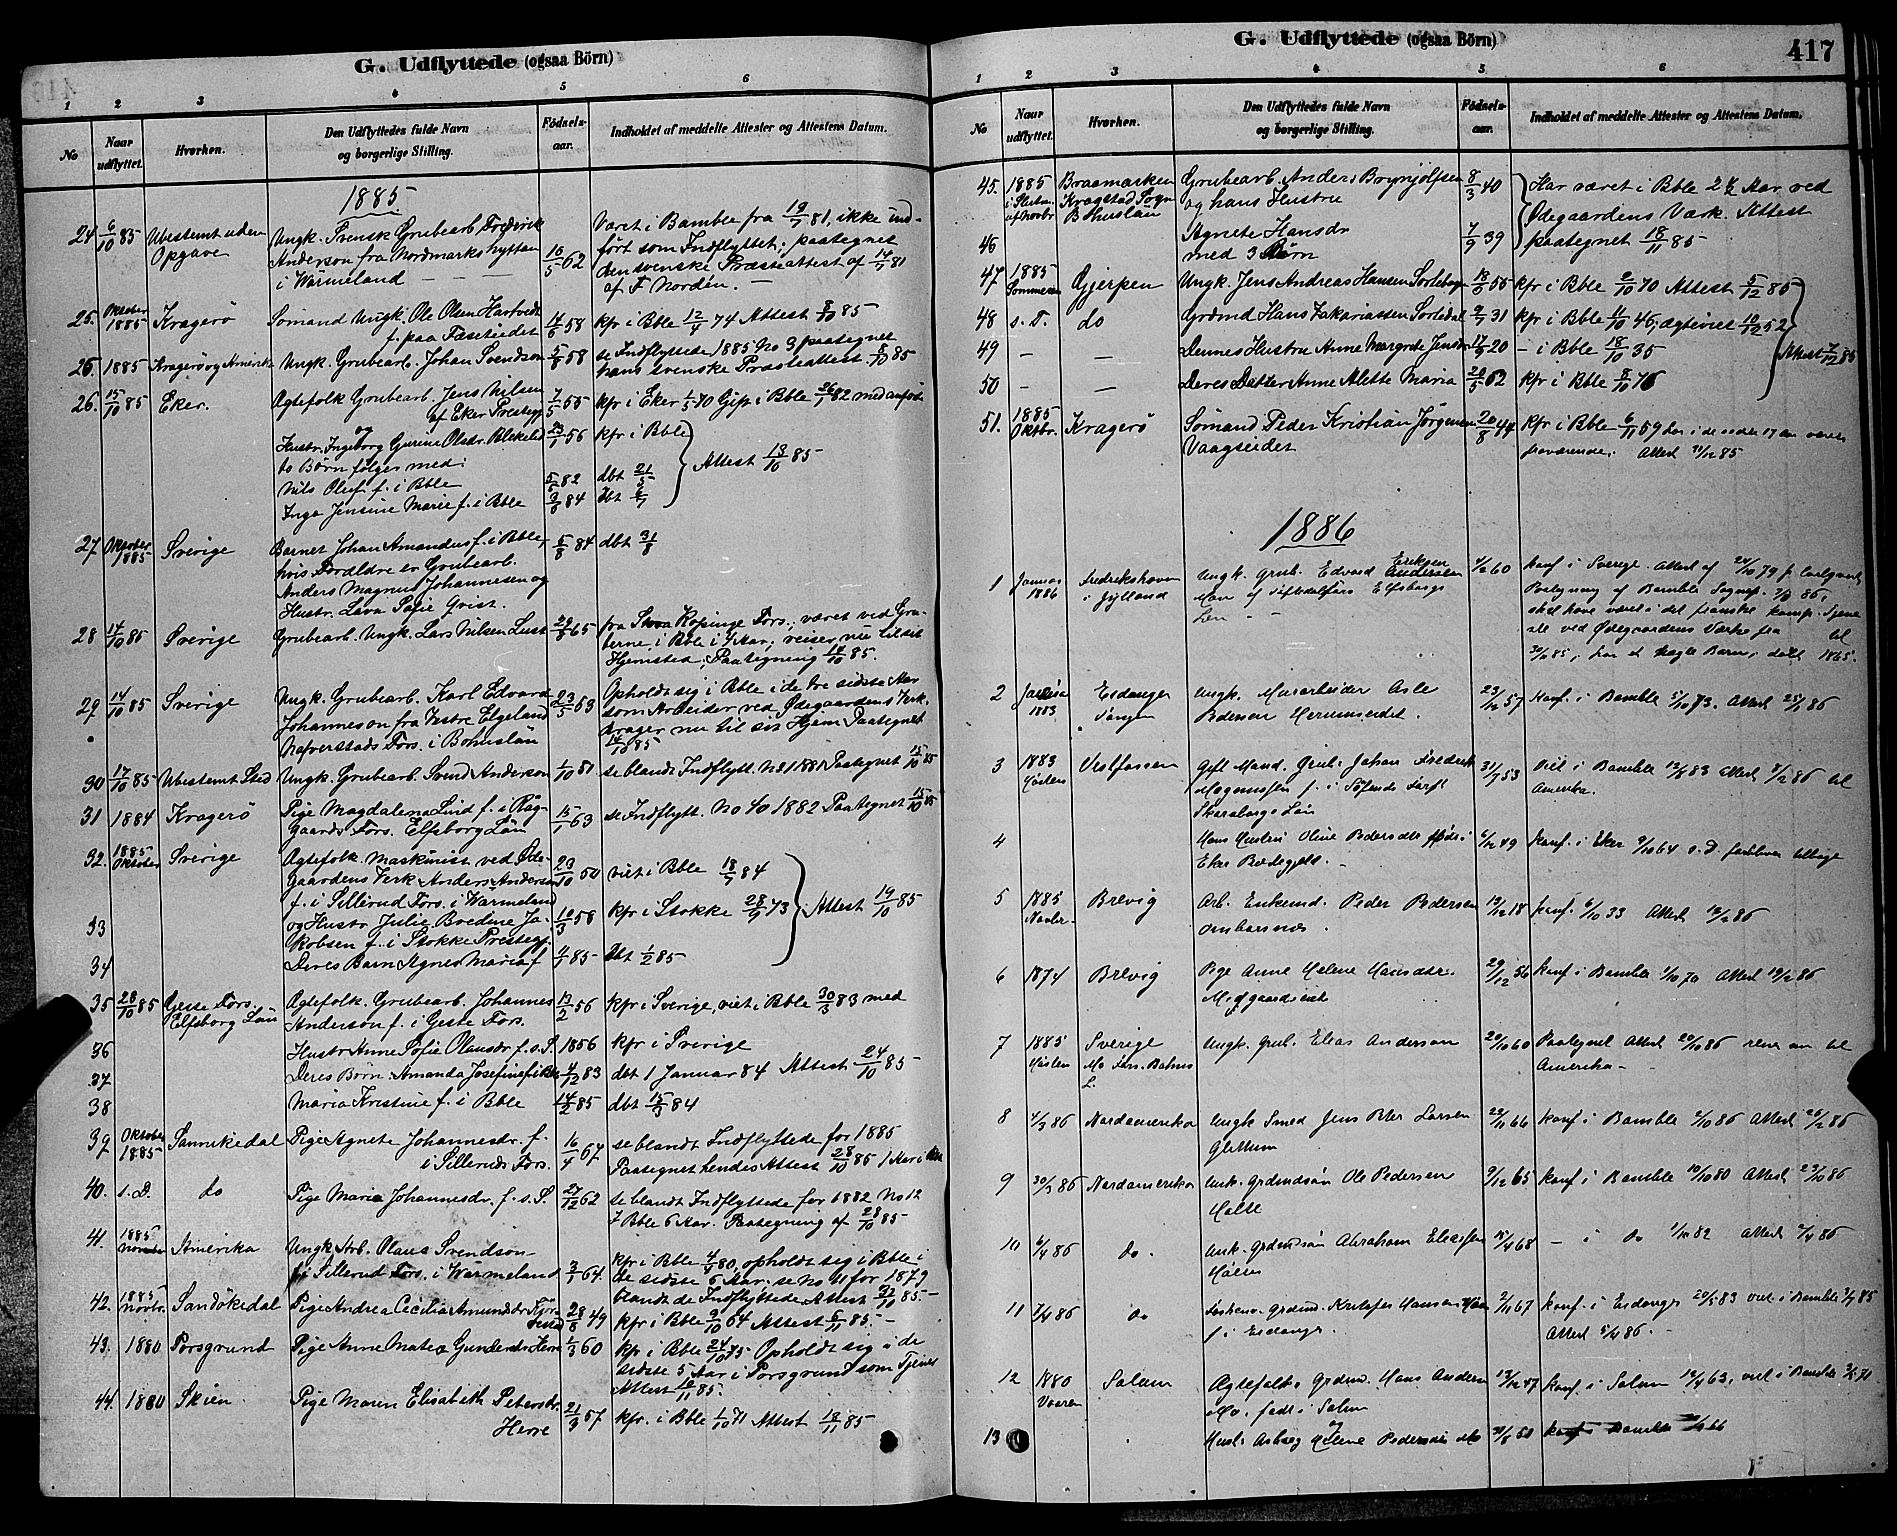 G. Udflyttede (ogsaa Börn)
1 2 3 4 5 6
No Naar udflyttet. Hvorhen. Den Udflyttedes fulde Navn og borgerlige Stilling. Fødsels-aar. Indholdet af meddelte Attester og Attestens Datum.
1885
24 6/10 85 Ubestemt uden Ungk. Svensk Grubearb Fredrik Været i Bamble fra 19/7 81, ikke ind-
Opgave Anderson fra Nordmarkshyttan 10/5 62 ført som Indflyttet; paategnet
i Wärmeland den svenske Præsteattest af 14/7 81
af F Nordén.
25. Oktober 1885 Kragerö Sømand Ungk. Ole Olsen Hartvedt 14/6 58 kfr i Bble 12/4 74 Attest 8/10 85
f. paa Fasesiedet
25. 1885 Kragerö og Amerika Ungk. Grubearb. Johan Svendson 5/8 58 se Indflyttede 1885 No 3 paategnet
hans svenske Præsteattest. 8/10 85
26. 15/10 85 Eker. Ægtefolk Grubearb. Jens Nilsen 7/5 55 kfr i Eker 1/5 70 Gift i Bble 26/1 82 med anført
af Eker Prestegj.
og
Hustr. Ingeborg Gurine Olsdr. Blekelid 23/1 56 kfr i Bble
to Börn følger med: Attest 13/10 85
Nils Oluf f. i Bble 5/5 82 dbt 21/5
Inga Jensine Marie f. i Bble 3/6 84 dbt
27 Oktober 1885 Sverige Barnet Johan Amandus f. i Bble, 5/8 84 dbt 31/8
hvis Forældre er Grubearb.
Anders Magnus Johannesen og
Hustr. Lava Sofie Qvist.
28 14/10 85 Sverige Grubearb. Ungk. Lars Nilsen Lust 29/8 65 fra Stora Köpinge Fors.; været ved Gru-
berne i Bble i 4 Aar; reiser nu til sit
Hjemsted; Paategning 14/10 85.
29 14/10 85 Sverige Ungk. Grubearb. Karl Edvard 23/5 63 Opholdt sig i Bble i de tre sidste Aar
Johanneson fra Vestre Elgeland som Arbeider ved Ødegaardens Verk.
Nafverstads Fors. i Bohuslän drager nu til sit Hjem Paategnet
14/10 85
30 17/10 85 Ubestemt Sted Ungk. Grubearb. Svend Anderson 1/10 51 se blandt Indflytt. No 1 1881 Paategnet 15/10 85
31 1884 Kragerö Pige Magdalena Lind f. i Rag- 15/1 63 se Indflytt. No 40 1882 Paategnet 15/10 85
gaards Fors. Elfsborg Län
32. 1885 Oktober Sverige Ægtefolk. Maskinist ved Øde- 23/10 50 viet i Bble 18/7 84
gaardens Verk Anders Anderson
f. i Sillerud Fors. i Wärmeland
33 og Hustr Julie Bredine Ja- 10/3 58 kfr i Stokke 28/9 73 Attest 19/10 85
kobsen f. i Stokke Prestegj.
34 Deres Barn Agnes Maria f 4/1 85 dbt 1/2 85
35 28/10 85 Geste Fors. Ægtefolk. Grubearb. Johannes 13/2 56 kfr i Sverige, viet i Bble 30/3 83 med
Elfsborg Län Anderson f. i Geste Fors.
36 Hustr Anne Sofie Olausdr f. s. S. 1856 kfr i Sverige
37 Deres Börn: Amanda Josefine f i Bble 4/12 83 dbt 1 Januar 84 Attest 24/10 85
38 Maria Kristine f. i Bble 14/2 85 dbt 15/3 84
39 Oktober 1885 Sannikedal Pige Agnete Johannesdr. f. 16/4 67 se blandt Indflyttede for 1885
i Silleruds Fors. Paategnet hendes Attest 28/10 85 1 Aar i Bble
40. s. D. do Pige Maria Johannesdr. f. s. S. 27/12 62 se blandt Indflyttede for 1882 No 12
I Bble 6 Aar. Paategning af 28/10 85
41. 1885 Novber Amerika Ungk Arb. Olaus Svendson 3/1 64. kfr i Bble 4/4 80, opholdt sig i Bble i
f. i Sillerud Fors. i Wärmeland de sidste 6 Aar se No 41 for 1879
blandt de Indflyttede Attest 31/10 85.
42. 1885 Novbr. Sandökedal Pige Andrea Cecilia Amundsdr 28/8 49 kfr i Bble 9/10 64 Attest 6/11 85
43. 1880 Porsgrund Pige Anne Matea Gundersdr Herre 1/3 60 kfr i Bble 24/10 75 Opholdt sig i de
sidste 5 Aar i Porsgrund som Tjener
Attest 10/11 85.
44. 1880 Skien Pige Maren Elisabeth Petersdr. 21/3 57 kfr. i Bble 1/10 71 Attest 18/11 85
Herre
G. Udflyttede (ogsaa Börn) 417
1 2 3 4 5 6
No Naar udflyttet. Hvorhen. Den Udflyttedes fulde Navn og borgerlige Stilling. Fødsels-aar. Indholdet af meddelte Attester og Attestens Datum.
45. 1885 Braamarken Grubearb. Anders Brynjolfsen 8/3 40 Har været i Bble 2 1/2 Aar ved
i Slutn. Kragstad Sogn og hans Hustru Ødegaardens Værk. Attest
af Novbr Bohuslän
46 Agnete Hansdr 7/9 39 paategnet 18/11 85
med 3 Børn
47 1885 Sommeren Gjerpen Ungk. Jens Andreas Hansen 18/6 55 kfr i Bble 2/10 70 Attest 5/12 85
48 s. D. do Grdmd Hans Zakariassen 2/7 31 kfr i Bble 11/10 46; ægteviet 10/12 52
49 — — Dennes Hustru Anne Margrete Jensdr 17/9 20 — i Bble 18/10 35 Attest 7/12 85
50 — — Deres Datter Anne Alette Maria 20/5 62 kfr i Bble 8/10 76
51. 1885 Oktbr. Kragerö Sømand Peder Kristian Jörgensen 20/8 44 kfr i Bble 6/11 59 har i de sidste 17 aar været
Vaagseidet fraværende. Attest 11/12 85
1886
1 Januar 1886 Fredrikshavn Ungk. Grub. Edvard Eriksen Andersen 4/2 60 konf. i Sverige. Attest af 24/10 79 f.
i Jylland Elfsborgs Paategning af Bamble Sognep.
Len skal have været i det franske komp. Tjene
ste ved Ødegaardens Værks fra til
30/10 85; har et uægte Barn, d 1865.
2 1883 Eidanger Ungk. Murarbeider Asle 23/12 57 konf. i Bamble 5/10 73. Attest 25/1 86
Pedersen Herumseidet.
3 1883 Høsten Vestfossen Gift Mand. Grub. Johan Fredrik 31/7 53 Viet i Bamble 83 Attest 8/2 86 til
Mogensøn f. i Amerika.
Skaraborgs Län
4 Hans Hustru Oline Pedersdtr fød i 6/12 49 konf. i Eker 9/10 64
Eker Præstegjeld.
5 1885 Novbr. Brevig Arb. Enkemd. Peder Pedersen 19/12 18 konf. 6/10 33 Attest 12/2 86
Ombornæs.
6 1874 Brevig Pige Anne Helene Hansdtr. 29/12 56 konf. i Bamble 1/10 70 Attest 19/2 86
Midgaardseidet
7 1885 Høsten Sverige Ungk. Grub. Elias Anderson 22/10 60 Paategnet Attest 20/10 86 reise til
Mo Fors. Bahus L. Amerika
8 4/3 86 Nordamerika Ungk Smed Jens Peter Larsen 22/11 66 konf. i Bamble 2/10 86 Attest 26/2 86
9 30/3 86 Nordamerika Ungk. Grdmdsøn Ole Pedersen 9/12 65 konf i Bamble 10/10 80 Attest 23/10 86
10 6/4 86 do. Ungk. Grdmdsøn Abraham Eliasen 18/4 68 — i do 1/10 82 Attest 6/4 86
11 7/4 86 do Grdmd. Kristofer Hansen 2/11 67 konf. i Eidanger 20/5 83 viet i Bamble 85
f. i Eidanger. Attest 5/4 86.
12 1880 Vaaren Solum Ægtefolk. Grdmd. Hans Andersen 19/12 47 konf. i Solum 12/4 63, viet i Bamble 71
Mo. født i Solum
og
13 Hustr. Asborg Helene Pedersdtr Mo 30/8 50 konf i Bamble 66